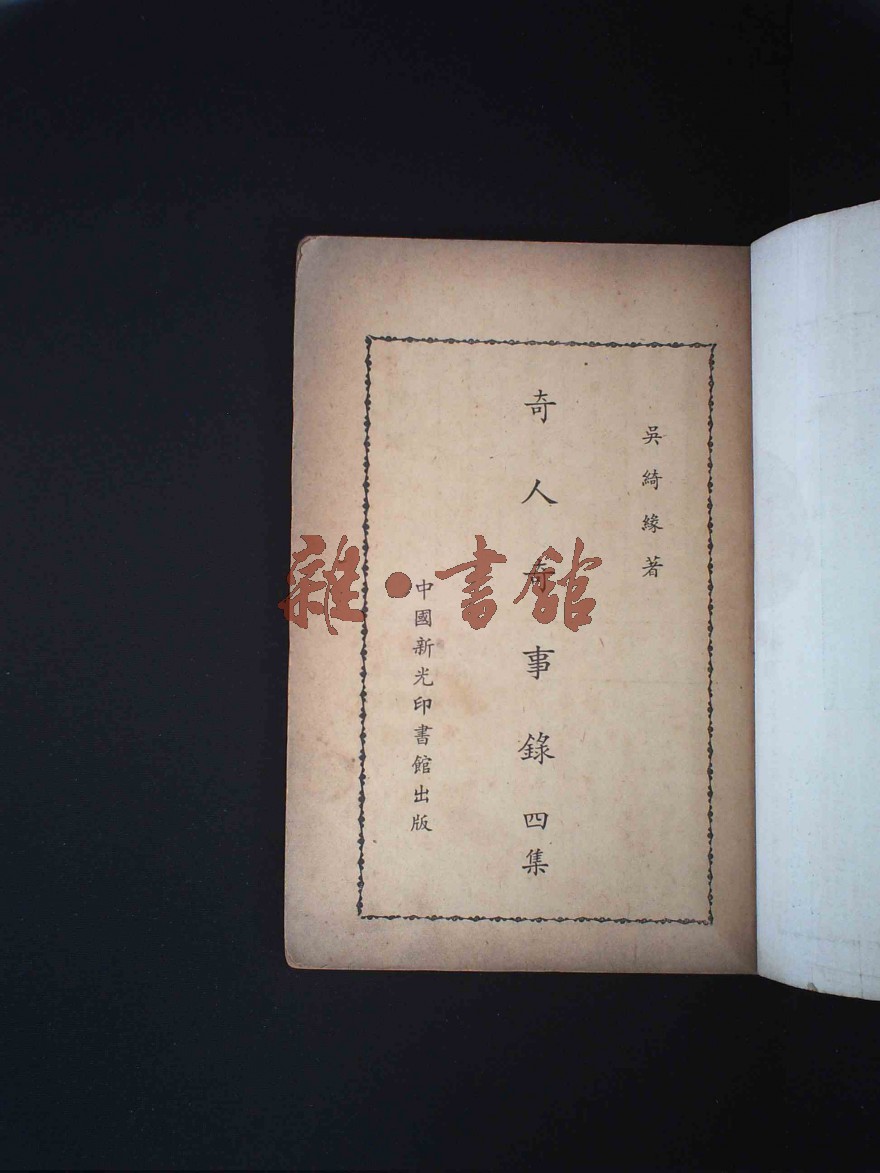 吳綺緣著
奇人奇事錄 四集
中國新光印書館出版
雜·書館